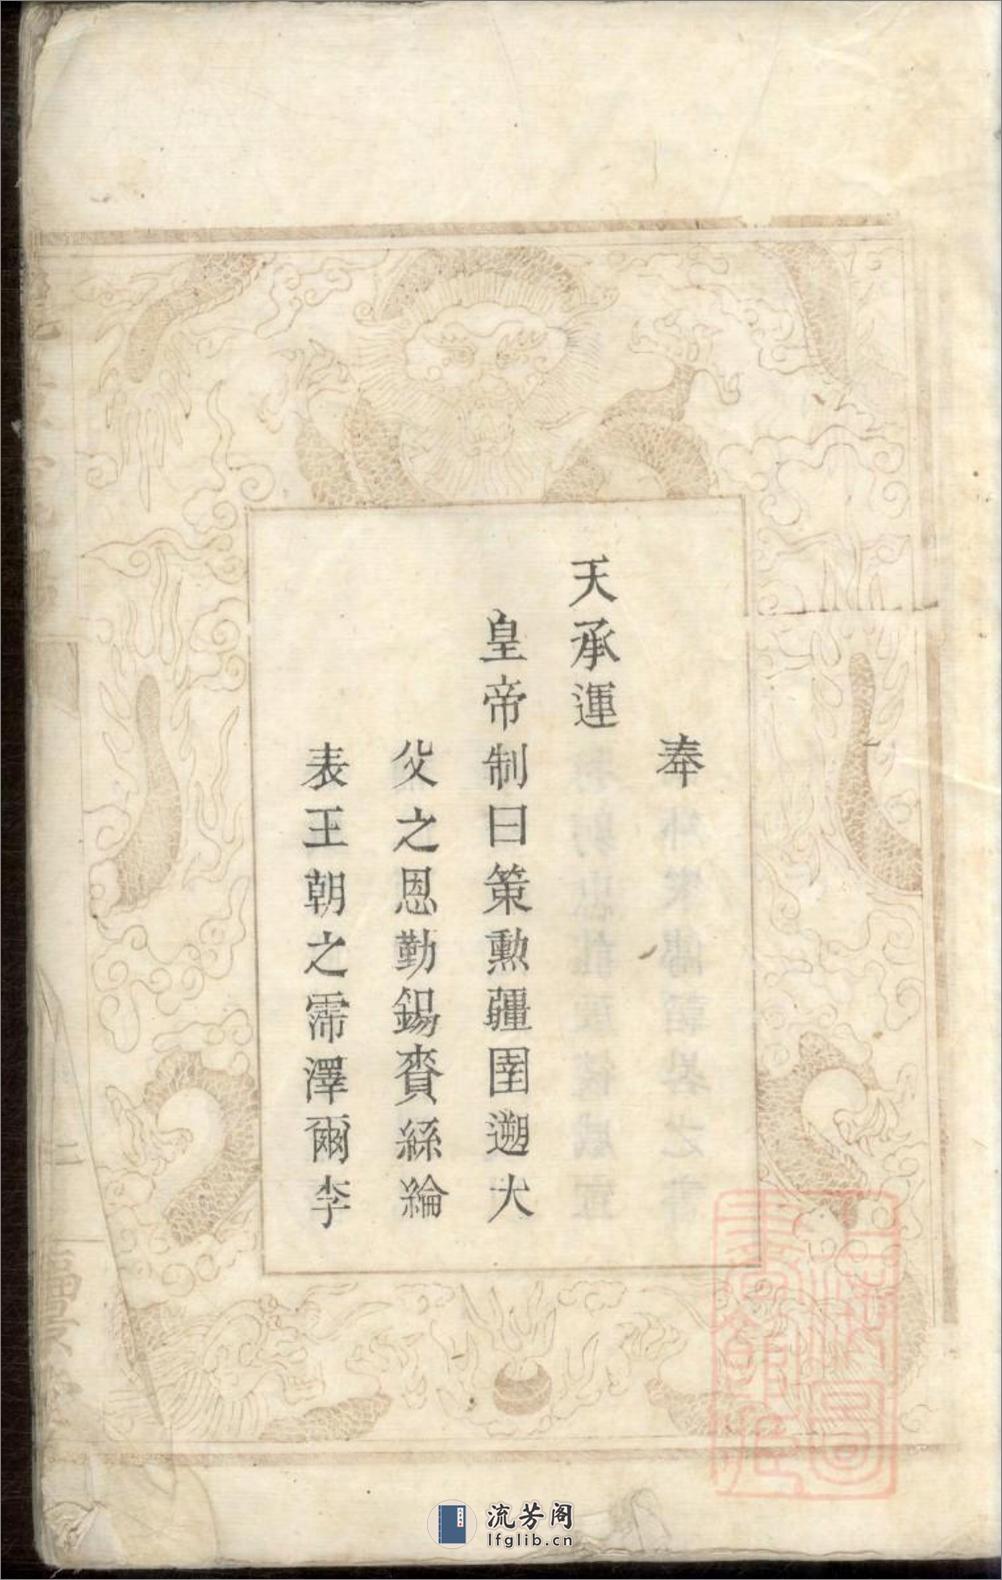 奉
天承運
皇帝制曰策勲疆圉遡大
父之恩勤錫賚絲綸
表王朝之霈澤爾李
流芳阁
lfglib.cn